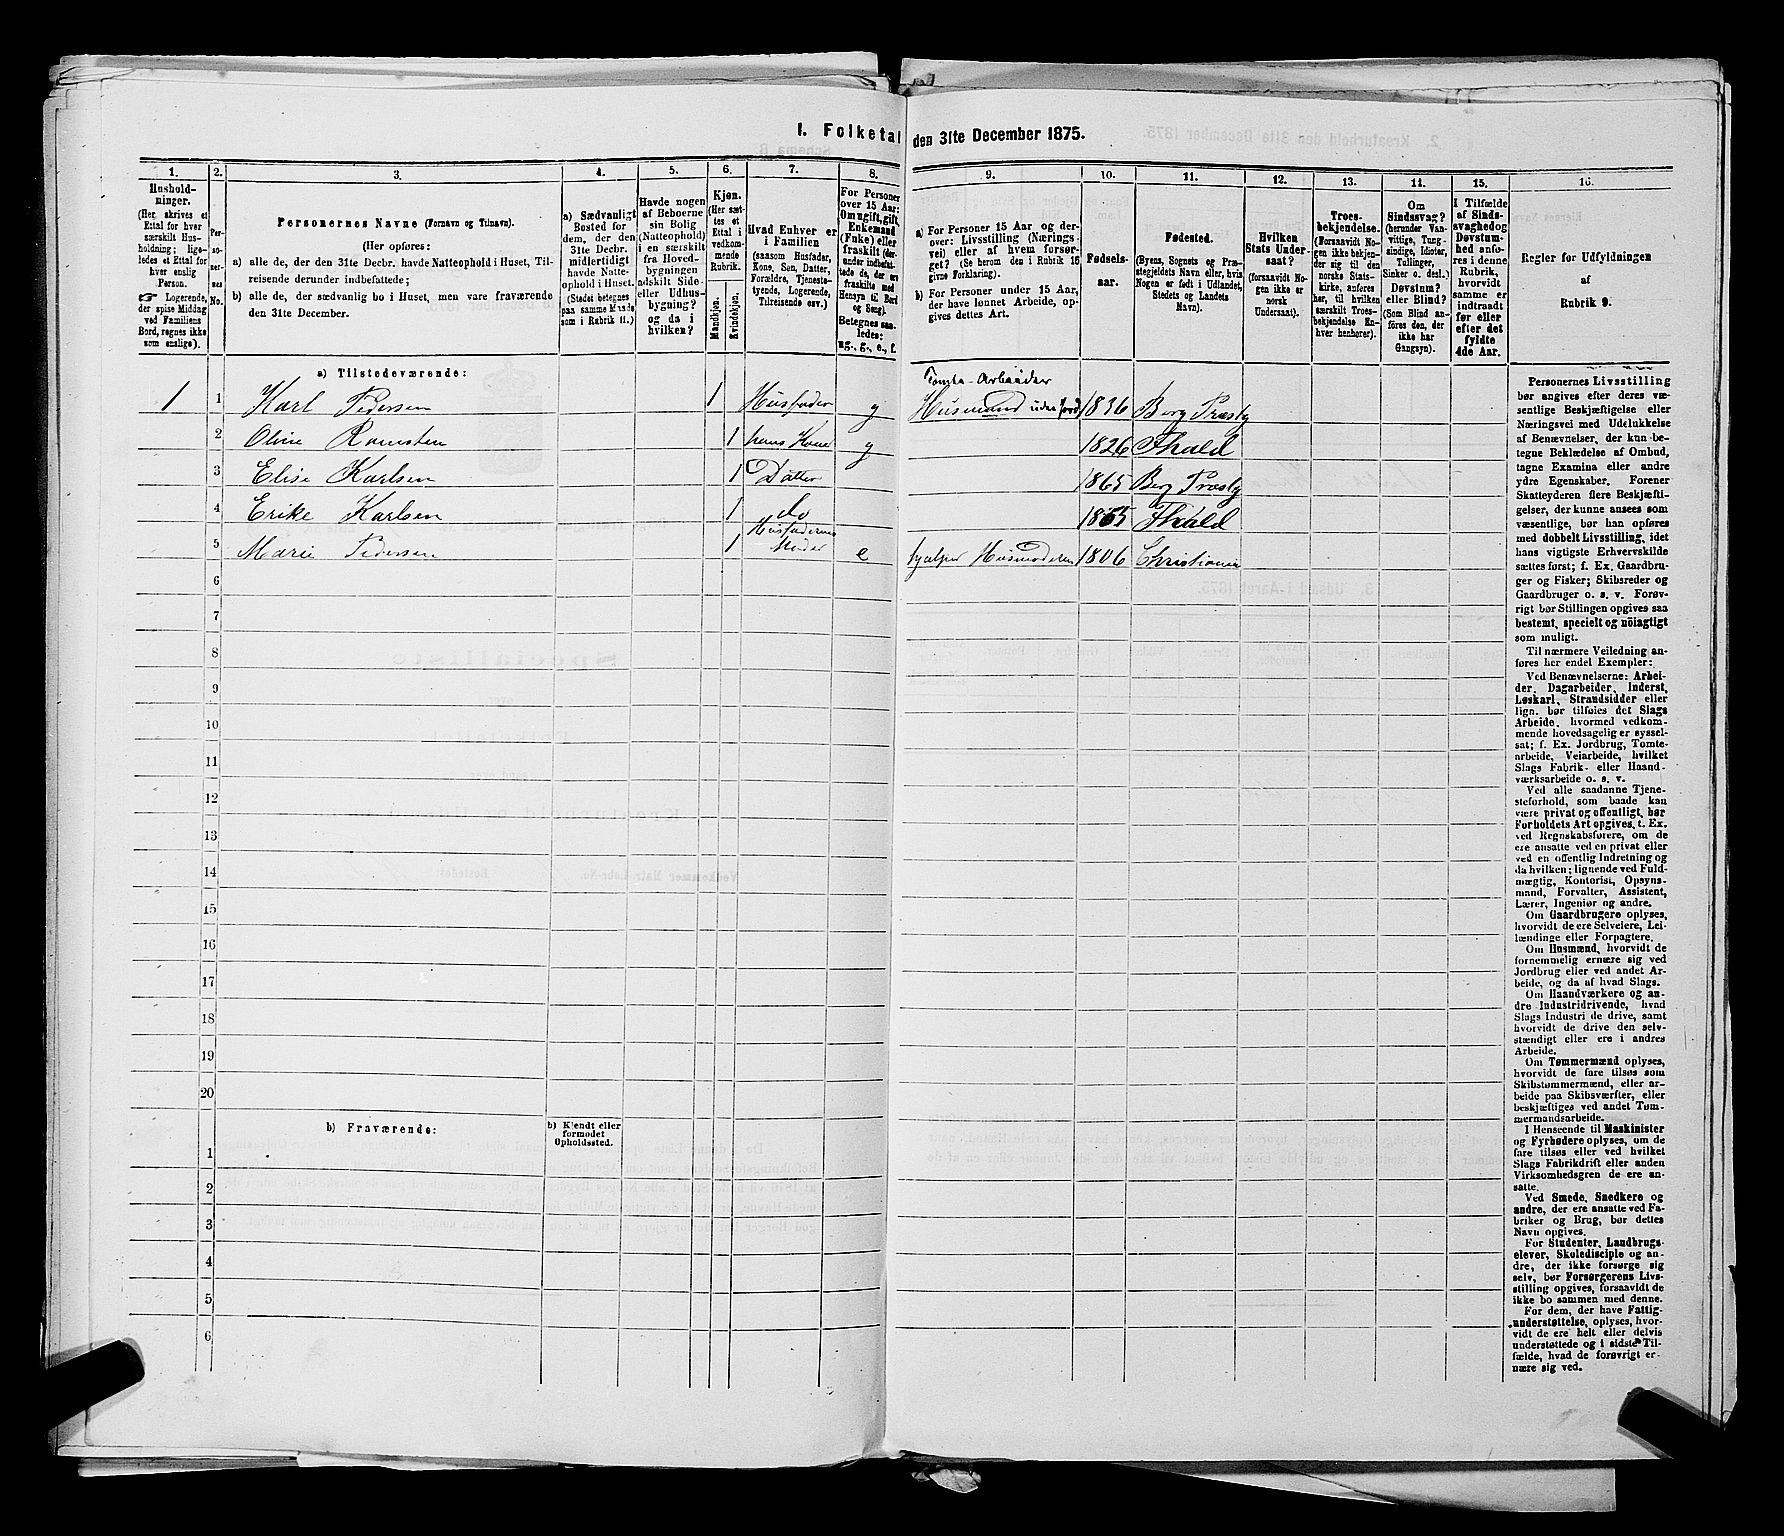 1. Folketal den 31te December 1875.
1.
2.
3.
4.
5.
6.
7.
8.
9.
10.
11.
12.
13.
14.
15.
16.
Hushold-
ninger.
(Her skrives et
Ettal for hver
særskilt Hus-
holdning; lige-
ledes et Ettal for
hver enslig
Person.
☞ Logerende,
der spise Middag
ved Familiens
Bord, regnes ikke
som enslige).
Per-
so-
ner-
nes
No.
Personernes Navne (Fornavn og Tilnavn).
(Her opføres:
a) alle de, der den 31te Decbr. havde Natteophold i Huset, Til-
reisende derunder indbefattede;
b) alle de, der sædvanlig bo i Huset, men vare fraværende
den 31te December.
a) Sædvanligt
Bosted for
dem, der den
31te Decbr.
midlertidigt
havde Natte-
ophold i Huset.
(Stedet betegnes
paa samme Maade
som i Rubrik 11.)
Havde nogen
af Beboerne
sin Bolig
(Natteophold)
i en særskilt
fra Hoved-
bygningen
adskilt Side-
eller Udhus-
bygning?
og da i
hvilken?
Kjøn.
(Her sæt-
tes et
Ettal i
vedkom-
mende
Rubrik.
Mandkjøn.
Kvindekjøn.
Hvad Enhver er
i Familien
(saasom Husfader,
Kone, Søn, Datter,
Forældre, Tjeneste-
tyende, Logerende,
Tilreisende osv.)
For Personer
over 15 Aar:
Om ugift, gift,
Enkemand
(Enke) eller
fraskilt (der-
under indbefat-
tede de, der ere
fraskilte med
Hensyn til Bord
og Seng).
Betegnes saa-
ledes:
ug., g., e., f.
a) For Personer 15 Aar og der-
over: Livsstilling (Nærings-
vei) eller af hvem forsør-
get? (Se herom den i Rubrik 16
givne Forklaring).
b) For Personer under 15 Aar,
der have lønnet Arbeide, op-
gives dettes Art.
Fødsels-
aar.
Fødested.
(Byens, Sognets og Præ-
stegjeldets Navn eller, hvis
Nogen er født i Udlandet,
Stedets og Landets
Navn).
Hvilken
Stats Under-
saat?
(forsaavidt No-
gen ikke er
norsk
Undersaat).
Troes-
bekjendelse.
(Forsaavidt No-
gen ikke bekjen-
der sig til den
norske Stats-
kirke, anføres
her, til hvilken
særskilt Troes-
bekjendelse En-
hver henhører).
Om
Sindssvag?
(herunder Van-
vittige, Tung-
sindige, Idioter,
Tullinger,
Sinker o. desl.)
Døvstum?
eller Blind?
(Som Blind an-
føres den, der
ikke har
Gangsyn).
I Tilfælde
af Sinds-
svaghed og
Døvstum-
hed anfø-
res i denne
Rubrik,
hvorvidt
samme er
indtraadt
før eller
efter det
fyldte
4de Aar.
Regler for Udfyldningen
af
Rubrik 9.
a) Tilstedeværende:
Tomte-Arbeider
1 1 Karl Pedersen 1 Husfader g Husmand uden Jord 1836 Berg Præstg
2 Oline Ramsten 1 hans Kone g 1826 Fhald
3 Elise Karlsen 1 Datter 1865 Berg Præstg
4 Erike Karlsen 1 do 1865 Fhald
5 Marie Pedersen 1 Husfaderens Moder e hjælper Husmoderen 1806 Christiania
6
7
8
9
10
11
12
13
14
15
16
17
18
19
20
b) Fraværende:
b) Kjendt eller
formodet
Opholdssted.
1
2
3
4
5
6
Personernes Livsstilling
bør angives efter deres væ-
sentlige Beskjæftigelse eller
Næringsvei med Udelukkelse
af Benævnelser, der kun be-
tegne Beklædelse af Ombud,
tagne Examina eller andre
ydre Egenskaber. Forener
Skatteyderen flere Beskjæfti-
gelser, der kunne ansees som
væsentlige, bør han opføres
med dobbelt Livsstilling, idet
hans vigtigste Erhvervskilde
sættes først; f. Ex. Gaardbru-
ger og Fisker; Skibsreder og
Gaardbruger o. s. v. Forøv-
rigt bør Stillingen opgives saa
bestemt, specielt og nöiagtigt
som muligt.
Til nærmere Veiledning an-
føres her endel Exempler:
Ved Benævnelserne: Arbei-
der, Dagarbeider, Inderst,
Løskarl, Strandsidder eller
lign. bør tilføies det Slags
Arbeide, hvormed vedkom-
mende hovedsagelig er syssel-
sat; f. Ex. Jordbrug, Tomte-
arbeide, Veiarbeide, hvilket
Slags Fabrik- eller Haand-
værksarbeide o. s. v.
Ved alle saadanne Tjene-
steforhold, som baade kan
være privat og offentligt, bør
Forholdets Art opgives, t. Ex.
ved Regnskabsførere, om de
ere ansatte ved en privat eller
ved en offentlig Indretning og
da hvilken; lignende ved Fuld-
mægtig, Kontorist, Opsyns-
mand, Forvalter, Assistent,
Lærer, Ingeniør og andre.
Om Gaardbrugere oplyses,
hvorvidt de ere Selveiere, Lei-
lændinge eller Forpagtere.
Om Husmænd, hvorvidt de
fornemmelig ernære sig ved
Jordbrug eller ved andet Ar-
beide, og da af hvad Slags.
Om Haandværkere og an-
dre Industridrivende, hvad
Slags Industri de drive, samt
hvorvidt de drive den selv-
stændigt eller ere i andres
Arbeide.
Om Tømmermænd oplyses,
hvorvidt de fare tilsøs som
Skibstømmermænd, eller ar-
beide paa Skibsværfter, eller
beskjæftiges ved andet Tøm-
mermandsarbeide.
I Henseende til Maskinister
og Fyrbødere oplyses, om de
fare tilsøs eller ved hvilket
Slags Fabrikdrift eller anden
Virksomhedsgren de ere an-
satte.
Ved Smede, Snedkere og
andre, der ere ansatte ved Fa-
briker og Brug, bør dettes
Navn opgives.
For Studenter, Landbrugs-
elever, Skoledisciple og an-
dre, der ikke forsørge sig
selv, bør Forsørgerens Livs-
stilling opgives, forsaavidt de
ikke bo sammen med denne.
For dem, der have Fattig-
understøttelse, oplyses, hvor-
vidt de ere helt eller delvis
understøttede og i sidste Til-
fælde, hvad de forøvrigt er-
nære sig ved.